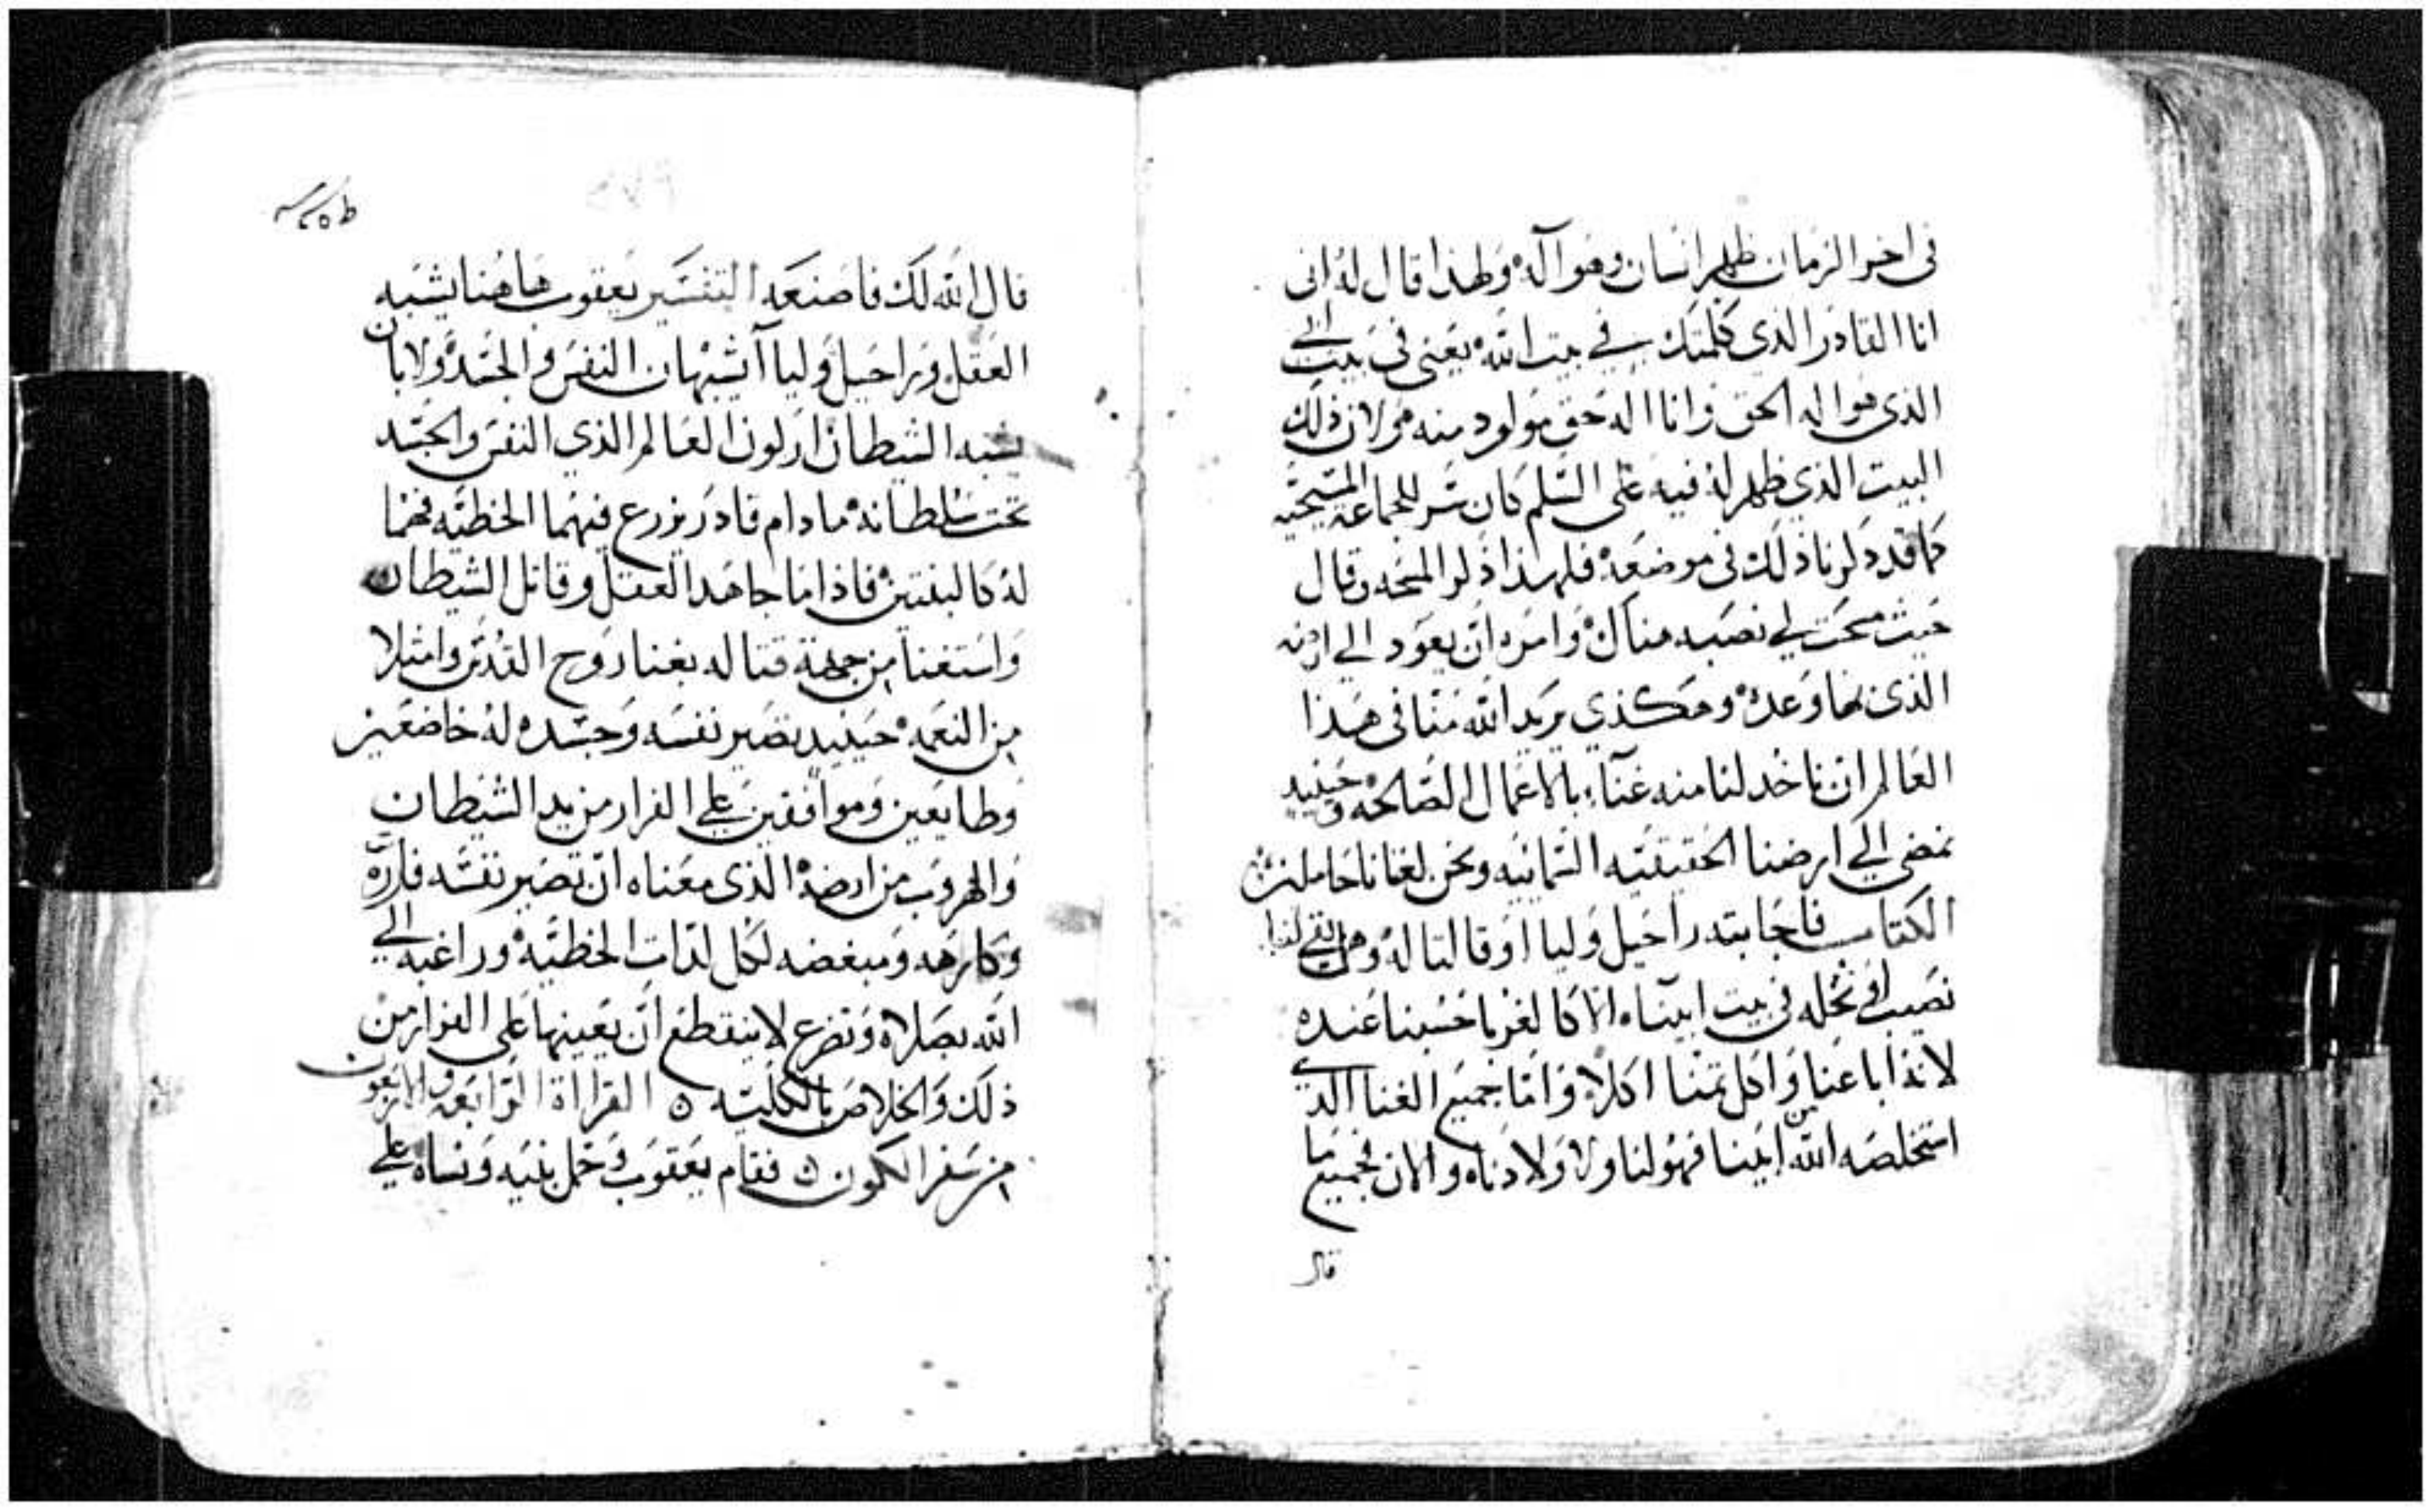 في اخر الزمان ظهر انسان وهو اله ولهذا قال له اني
انا القادر الذي كلمتك في بيت الله يعني في بيت ابي
الذي هو اله الحق وانا اله حق مولود منه لان ذلك
البيت الذي ظهر له فيه على السلم كان سر للجماعة المسيحيه
كما قد دكرنا ذلك في موضعه فلهذا ذكر المسحه وقال
حيث مسحت لي نصبه هناك وامره ان يعود الي ارضه
الذي بها وعده وهكذي يريد الله منا في هذا
العالم ان ناخد لنا منه غناء بالاعمال الصالحه وحينيد
نمضي الي ارضنا الحقيقيه السمائيه ونحن لغنانا حاملين
الكتاب فاجابته راحيل وليا اوقالتا له وهل بقي لنا
نصيب او نحله في بيت ابينا الا كالغربا حسبنا عنده
لانه اباعنا واكل تمننا اكلا واما جميع الغنا الدي
استخلصه الله من ابينا فهو لنا ولاولادنا والان فجميع ما
قال
قال الله لك فاصنعه التفسير يعقوب هاهنا يشبه
العقل وراحيل وليا يشبهان النفس والجسد ولابان
يشبه الشيطان اركون العالم الذي النفس والجسد
تحت سلطانه ما دام قادر يزرع فيهما الخطيه فهما
له كالبنتين فاذا ما جاهد العقل وقاتل الشيطان
واستغنا من جهة قتاله بغنا روح القدس وامتلا
من النعمه حينيد تصير نفسه وجسده له خاضعين
وطايعين وموافقين على الفرار من يد الشيطان
والهروب من ارضه الذي معناه ان تصير نفسه فاره
وكارهه ومبغضه لكل لدات الخطيه وراغبه الي
الله بصلاه وتضرع لا ينقطع ان يعينها على الفرار من
ذلك والخلاص بالكليه ه القرااة الرابعه والاربعون
من سفر الكون ه فقام يعقوب وحمل بنيه ونساه على